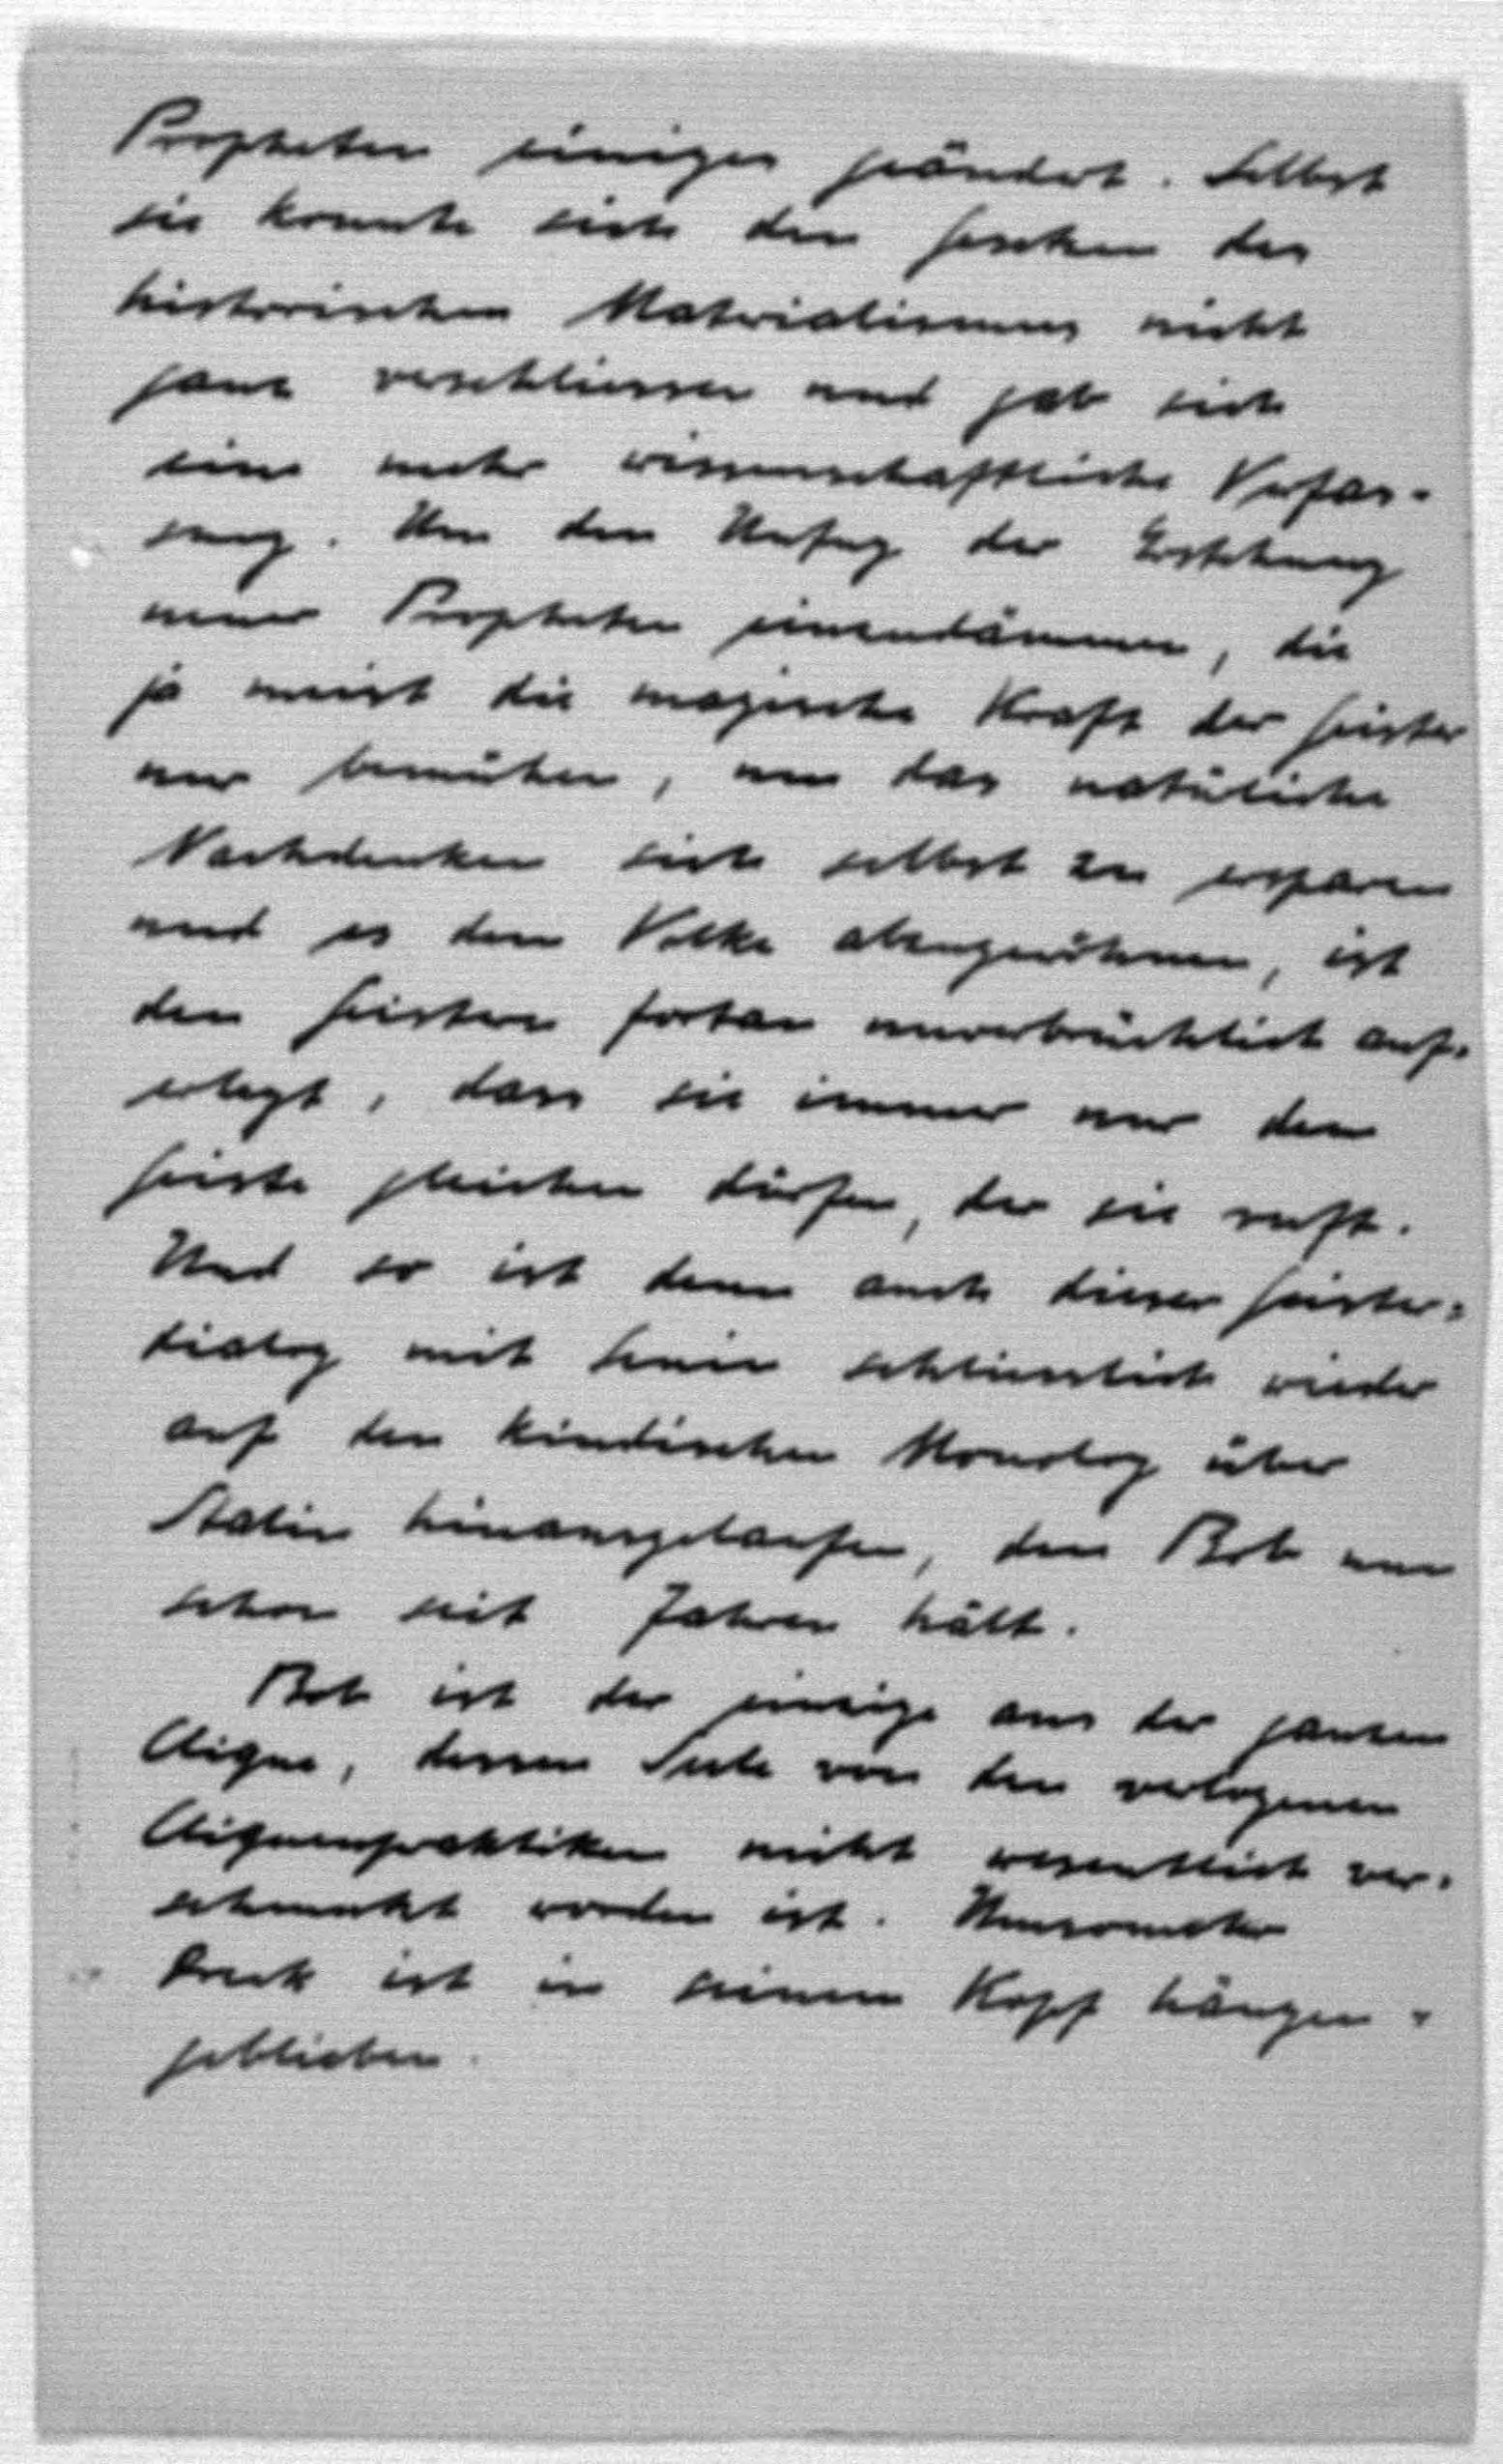 Propheten einiges geändert. Selbst
sie konnte sich den Gesetzen des
historischen Materialismus nicht
ganz verschliessen und gab sich
eine mehr wissenschaftliche Verfas-
sung. Um den Unfug der Erstehung
neuer Propheten einzudämmen, die
ja meist die magische Kraft der Geister
nur bemühen, um das natürliche
Nachdenken sich selbst zu ersparen
und es dem Volke abzugewöhnen, ist
den Geistern fortan unverbrüchlich auf-
erlegt, dass sie immer nur dem
Geiste gleichen dürfen, der sie ruft.
Und so ist denn auch dieser Geister-
dialog mit Lenin schliesslich wieder
auf den kindischen Monolog über
Stalin hinausgelaufen, den Bob nun
schon seit Jahren hält.
Bob ist der einzige aus der ganzen
Clique, dessen Seele von den verlogenen
Cliquenpraktiken nicht wesentlich ver-
schmutzt worden ist. Umsomehr
Dreck ist in seinem Kopf hängen-
geblieben.